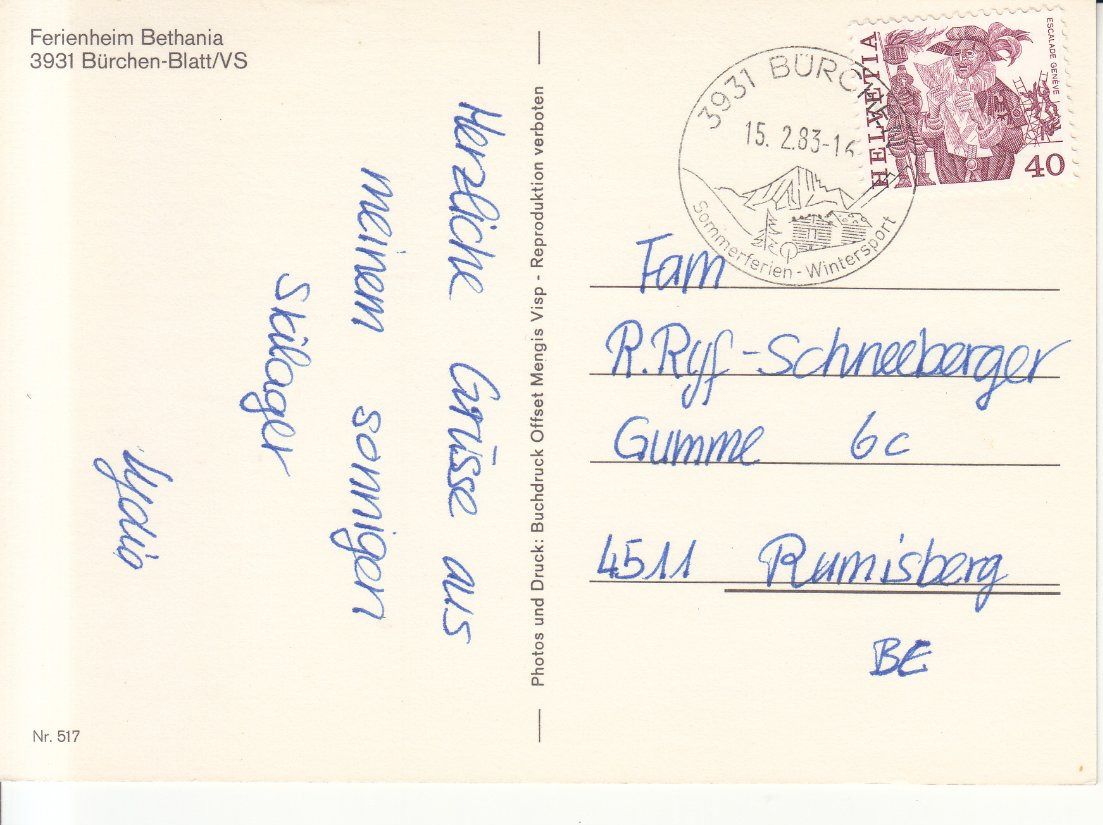 Ferienheim Bethania
3931 Bürchen-Blatt/VS
Herzliche Grüsse aus
meinem sonnigen
Skilager
Lydia
Nr. 517
Photos und Druck: Buchdruck Offset Mengis Visp - Reproduktion verboten
3931 BÜRCHEN
15. 2.83-16
Sommerferien - Wintersport
HELVETIA
ESCALADE GENÈVE
40
Fam
R. Ryf-Schneeberger
Gumme 6c
4511 Rumisberg
BE